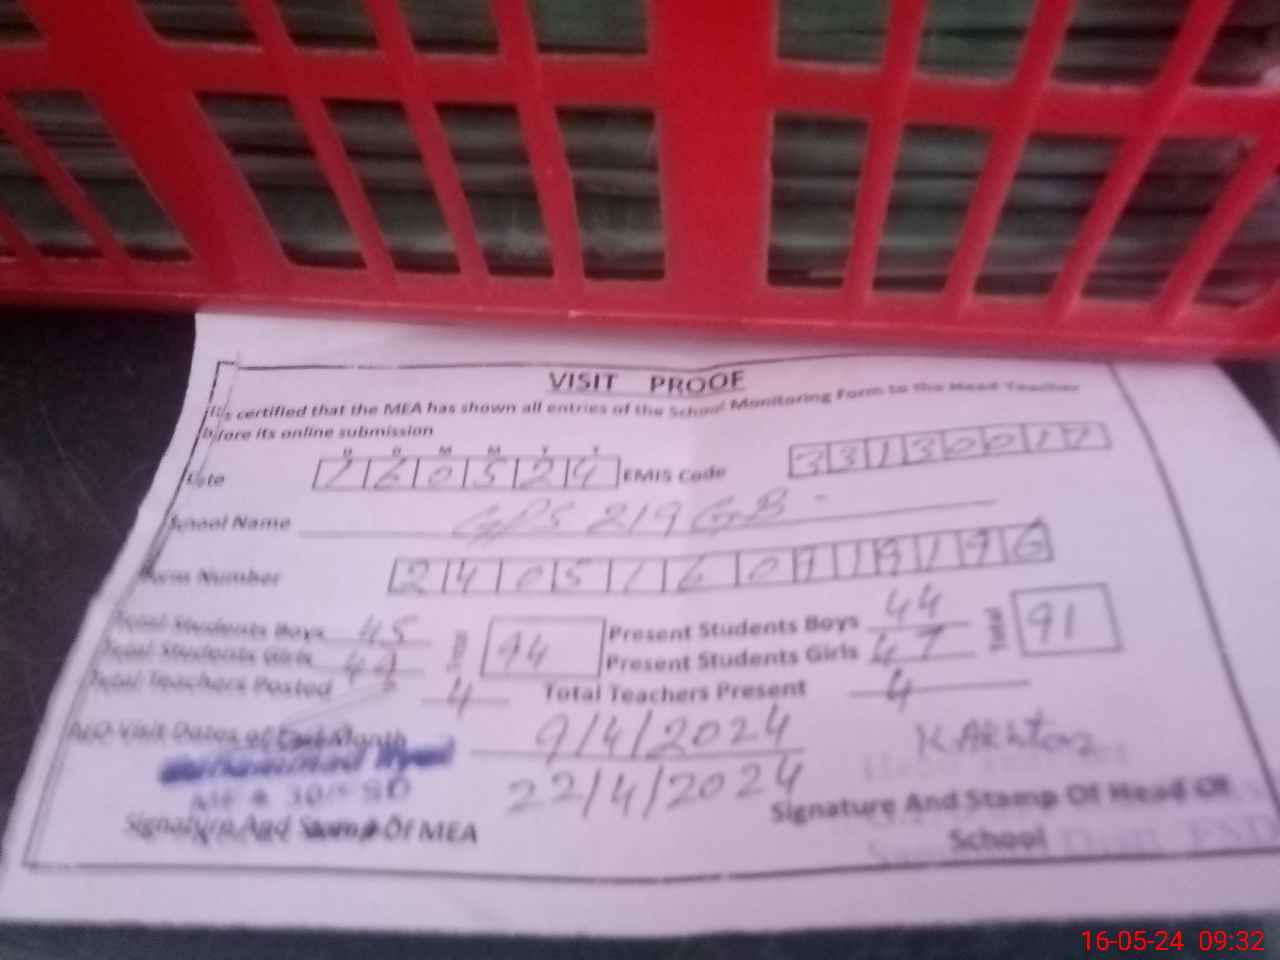 VISIT PROOF
It is certified that the MEA has shown all entries of the School Monitoring Form to the Head Teacher
before its online submission
D D M M Y Y
Date 160524 EMIS Code 33130017
School Name GPS 219 GB
Form Number 2405160919196
Total Students Boys 45 Total 94 Present Students Boys 44 Total 91
Total Students Girls 49 Present Students Girls 47
Total Teachers Posted 4 Total Teachers Present 4
AEO Visit Dates of Last Month 9/4/2024 K Akhtar
22/4/2024
Signature And Stamp Of MEA Signature And Stamp Of Head Of
School
16-05-24 09:32